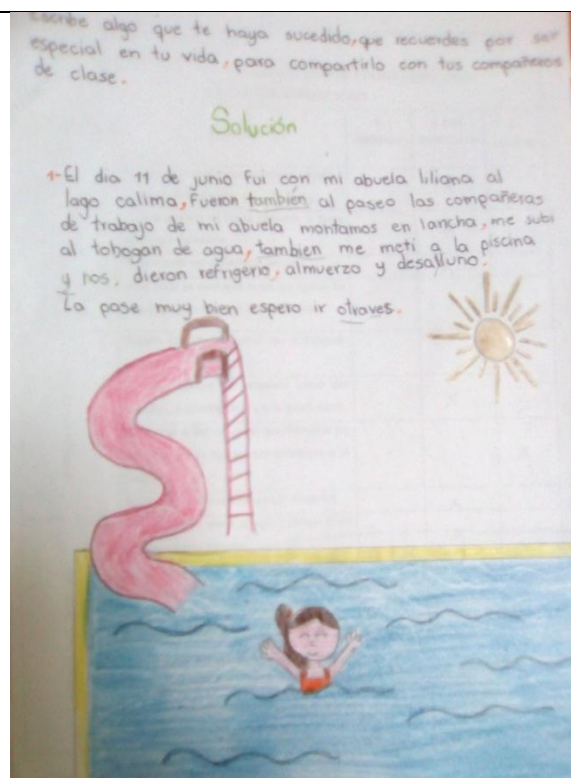 Escribe algo que te haya sucedido, que recuerdes por ser
especial en tu vida, para compartirlo con tus compañeros
de clase.
Solución
1-El dia 11 de junio fui con mi abuela liliana al
lago calima, fueron también al paseo las compañeras
de trabajo de mi abuela montamos en lancha, me subi
al tobogan de agua, tambien me metí a la piscina
y nos, dieron refrigerio, almuerzo y desalluno.
La pase muy bien espero ir otraves.